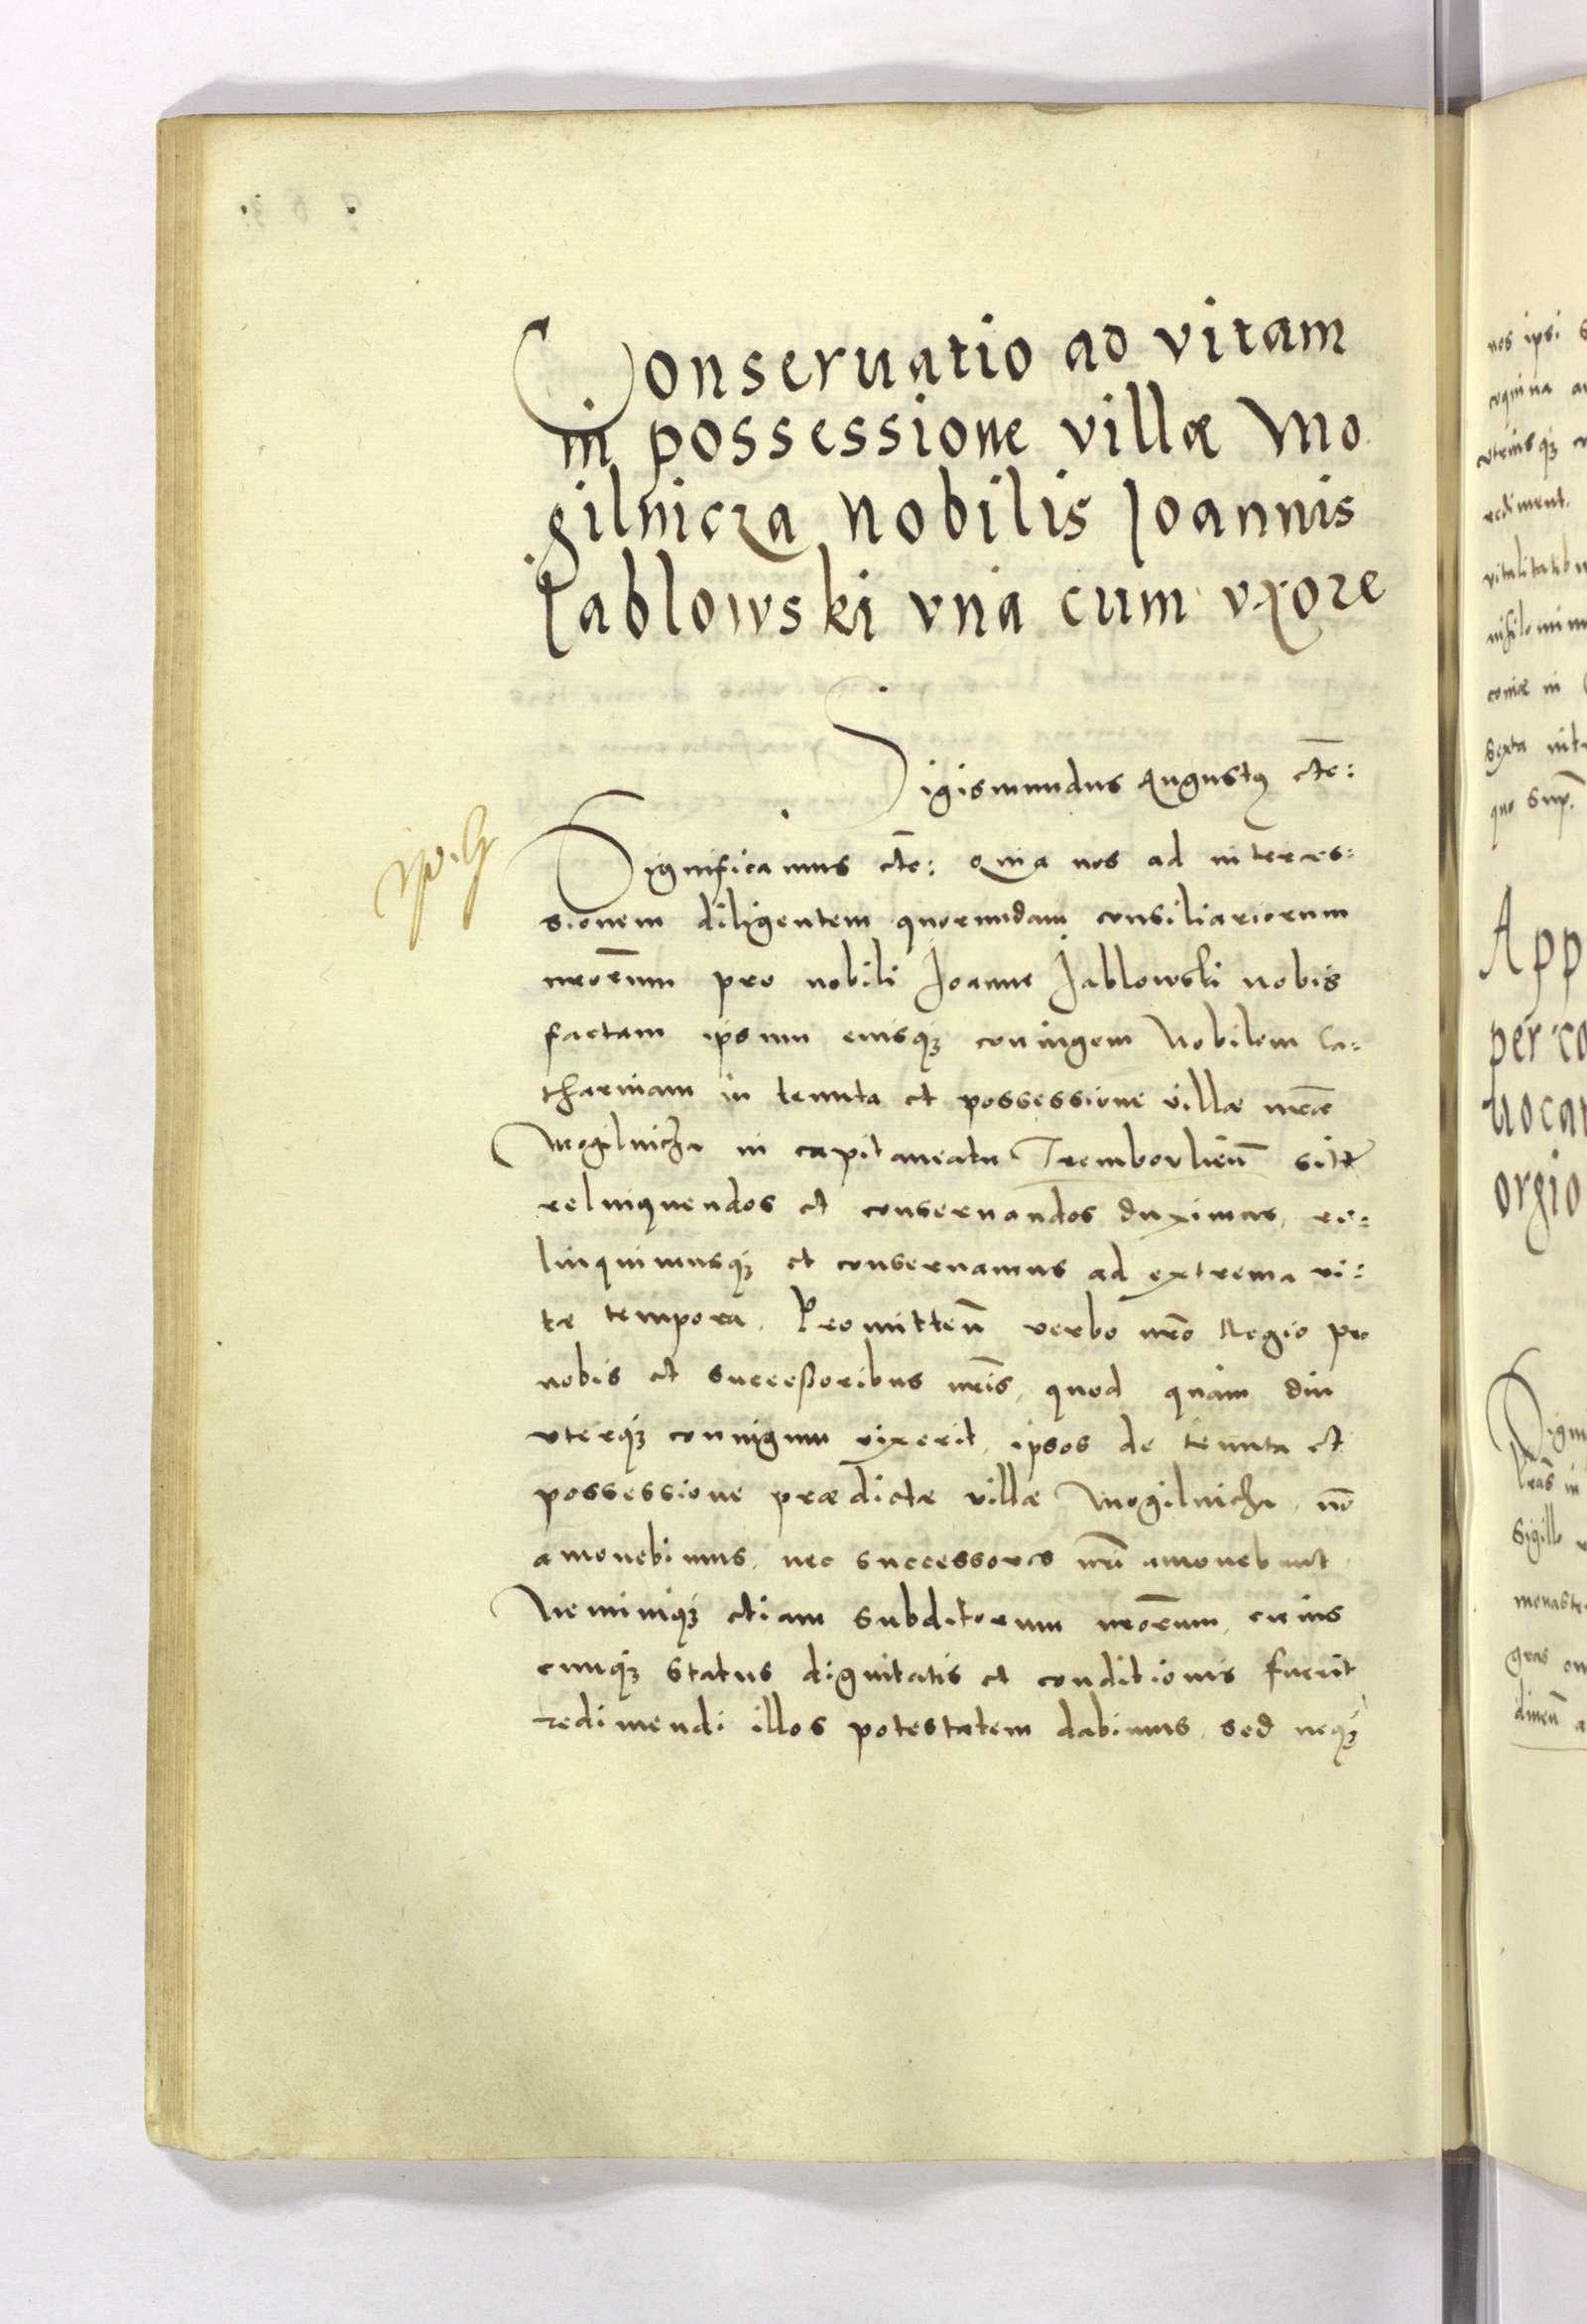 Conseruatio ad vitam
in possessione villæ Mo
gilnicza nobilis Joannis
Jablowski vna cum vxore
Sigismundus Augustꝰ etc̄:
Significamus etc̄: Quia nos ad interces=
sionem diligentem quorundam consiliariorum
nr̄orum pro nobili Joanne Jablowski nobis
factam ipsum eiusqꝫ coniugem Nobilem Ca=
tharinam in tenuta et possessione villæ nr̄æ
Mogilnicza in capitaneatu Trembowlien̄ sitæ
relinquendos et conseruandos duximus, re=
linquimusqꝫ et conseruamus ad extrema vi=
tæ tempora. Promitten̄ verbo nr̄o Regio pro
nobis et successoribus nr̄is, quod quam diu
vterqꝫ coniugum vixerit, ipsos de tenuta et
possessione prædictæ villæ Mogilnicza, nō
amouebimus, nec successores nr̄i amouebunt
Neminiqꝫ etiam subditorum nr̄orum, cuius
cunqꝫ status dignitatis et conditionis fuerit
redimendi illos potestatem dabimus, sed neqꝫ
nos ipsi
vtriusqꝫ
rediment.
nihilomin
sexta
quo sup.
App
per co
uocan
orgio
Signi
lr̄as in
Sigillo
monaste